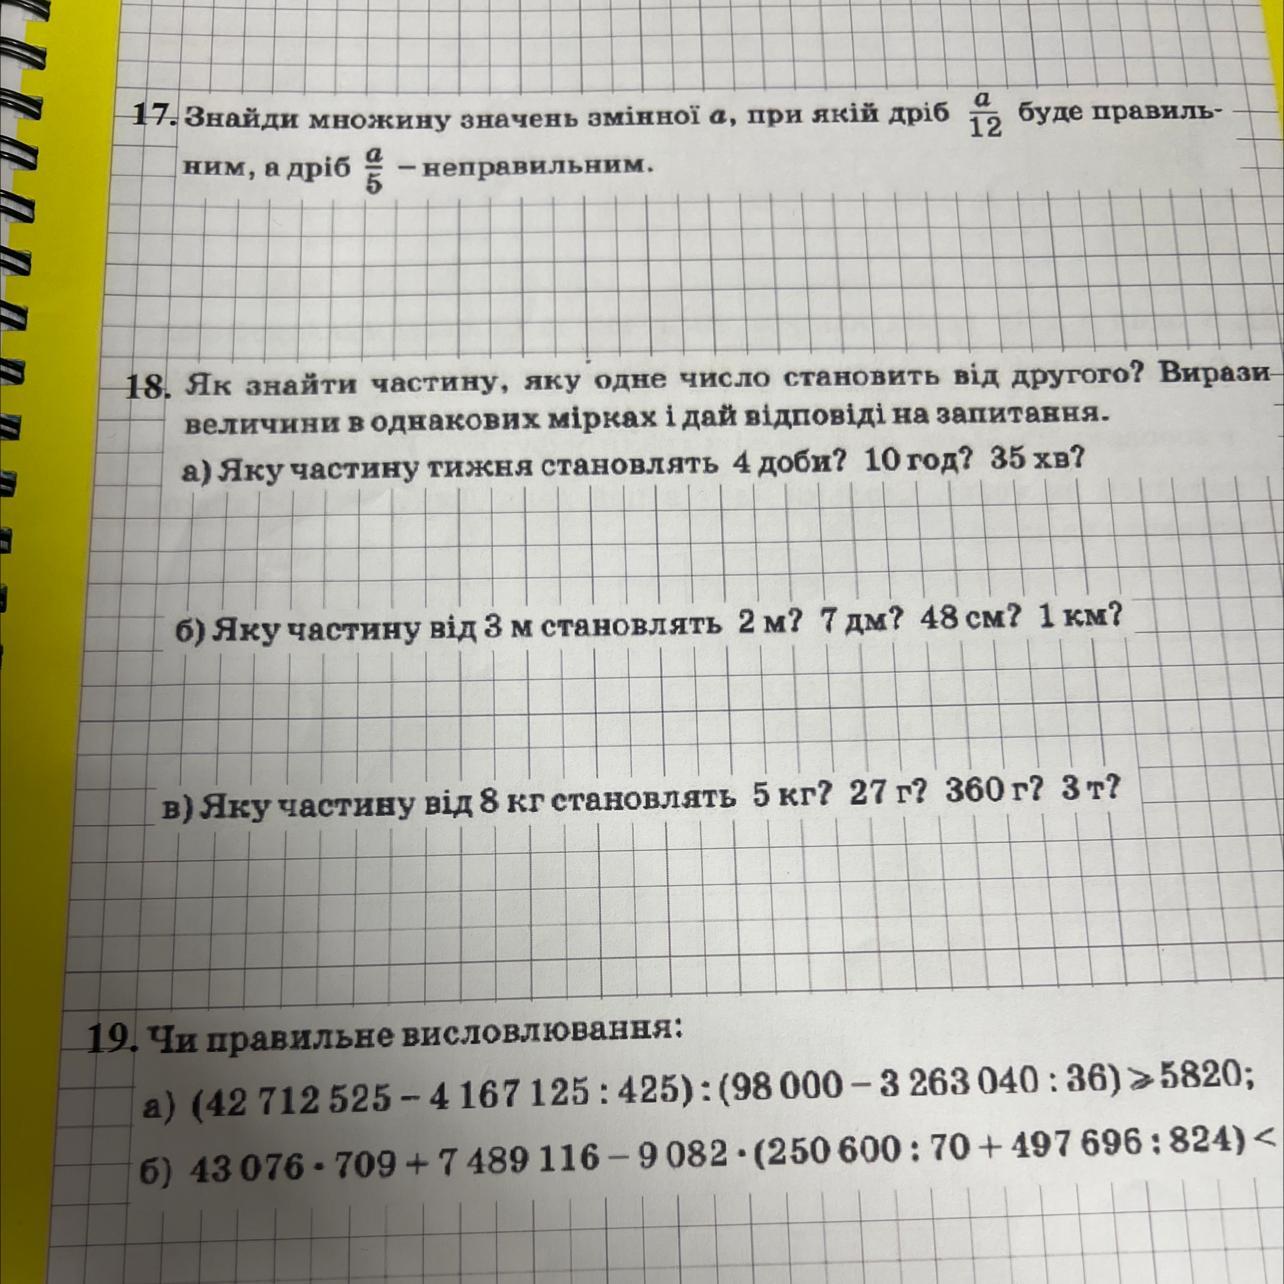 17. Знайди множину значень змінної a, при якій дріб a/12 буде правиль-
ним, а дріб a/5 – неправильним.
18. Як знайти частину, яку одне число становить від другого? Вирази
величини в однакових мірках і дай відповіді на запитання.
а) Яку частину тижня становлять 4 доби? 10 год? 35 хв?
б) Яку частину від 3 м становлять 2 м? 7 дм? 48 см? 1 км?
в) Яку частину від 8 кг становлять 5 кг? 27 г? 360 г? 3 т?
19. Чи правильне висловлювання:
а) (42 712 525 – 4 167 125 : 425) : (98 000 – 3 263 040 : 36) ⩾ 5820;
б) 43 076 · 709 + 7 489 116 – 9 082 · (250 600 : 70 + 497 696 : 824) <